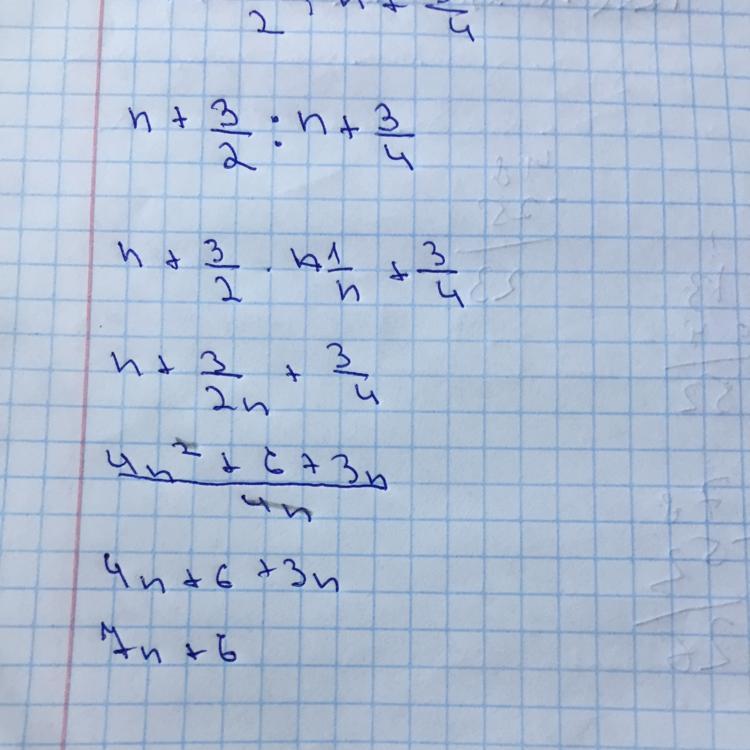 n + 3/2 : n + 3/4
n + 3/2 · 1/n + 3/4
n + 3/2n + 3/4
(4n² + 6 + 3n)/4n
4n + 6 + 3n
7n + 6